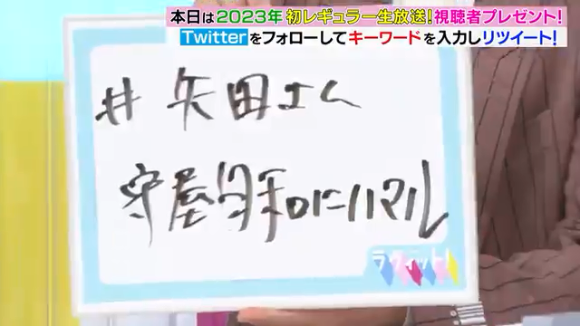 本日は2023年 初レギュラー生放送!視聴者プレゼント!
Twitterをフォローしてキーワードを入力しリツイート!
#矢田さん
守屋日和にハマル
ラヴィット!